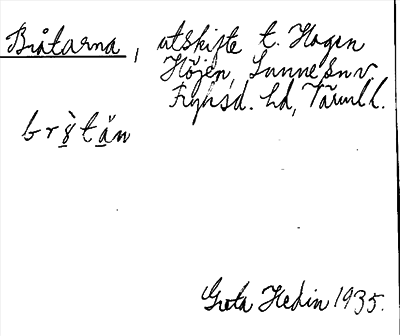 Bråtarna, utskifte t. Hagen
Höjen, Sunne sn v.
Fryksd. hd, Värml.
Greta Hedin 1935.